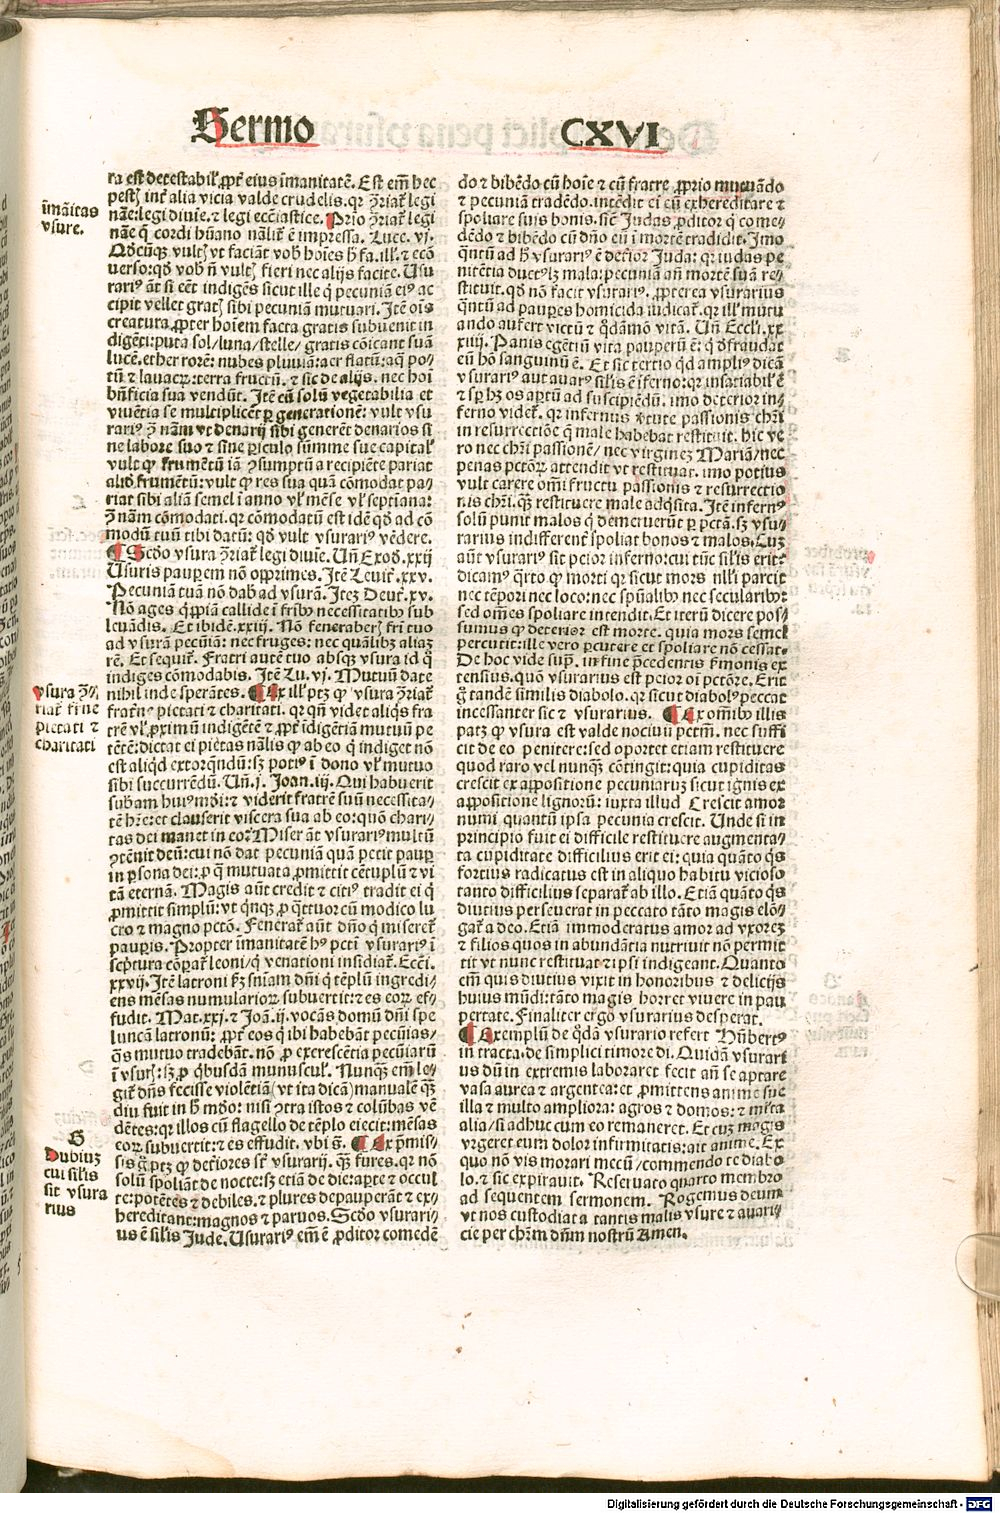 Sermo
CXVI
īmāitas
vsure.
ra est detestabil' ꝓpt̄ eius īmanitatē. Est em̄ hec
pestꝫ int̄ alia vicia valde crudelis. qꝛ ꝯ̄riat̄ legi
nāe: legi diuīe. ⁊ legi ecc̄iastice. Prio ꝯ̄riat̄ legi
nāe q̄ cordi hūano nālit̄ ē impressa. Luce. vj.
Qd̄cūqꝫ vultꝭ vt faciāt vob̄ hoīes h̄ fa. ill'. ⁊ ecō
uerso: qd̄ vob̄ n̄ vultꝭ fieri nec alijs facite. Usu
rariꝰ āt si eēt indigēs sicut ille q̄ pecuniā eiꝰ ac
cipit vellet gratꝭ sibi pecuniā mutuari. Itē oīs
creatura ꝓpter hoīem facta gratis subuenit in
digēti: puta sol/luna/stelle/ gratis cōicant suā
lucē. ether rorē: nubes pluuiā: aer flatū: aq̄ po-
tū ⁊ lauacꝝ: terra fructū. ⁊ sic de alijs. nec hoī
bn̄ficia sua vendūt. Itē cū solū vegetabilia et
viuētia se multiplicēt per generationē: vult vsu
rariꝰ ꝯ̄ nām vt denarij sibi generēt denarios si
ne labore suo ⁊ sine ꝑiculo summe sue capital'
vult ꝙ frumētū iā ꝯsumptū a recipiēte pariat
aliđ frumētū: vult ꝙ res sua quā cōmodat pa-
riat sibi aliā semel ī anno vl' mēse vl' septiana:
ꝯ̄ nam cōmodati. qꝛ cōmodatū est idē qd̄ ad cō
modū tuū tibi datū: qd̄ vult vsurariꝰ vēdere.
¶ Scđo vsura ꝯ̄riat̄ legi diuīe. Un̄ Exod̄. xxij
Usuris pauꝑem nō opprimes. Itē Leuit̄. xxv.
Pecuniā tuā nō dab̄ ad vsurā. Iteꝫ Deut̄. xv.
Nō ages q̄ppiā callide ī fr̄ibꝰ necessitatibꝰ sub
leuādis. Et ibidē. xxiij. Nō feneraberꝭ fr̄i tuo
ad vsurā pecūiā: nec fruges: nec quālibꝫ aliaꝫ
rē. Et sequit̄. Fratri autē tuo absqꝫ vsura id q̄
indiges cōmodabis. Itē Lu. vj. Mutuū date
nihil inde sperātes. ¶ Ex ill' ptꝫ ꝙ vsura ꝯ̄riat̄
vsura ꝯ̄/
riat̄ frne
pietati ⁊
charitati
frat̄ne pietati ⁊ charitati. qꝛ qn̄ videt aliq̄s fra
trē vl' ꝓximū indigētē ⁊ ꝓpt̄ īdigētiā mutuū pe
tētē: dictat ei pietas nālis ꝙ ab eo q̄ indiget nō
est aliqd̄ extorq̄ndū: sꝫ potiꝰ ī dono vl' mutuo
sibi succurrēdū. Un̄. j. Joan. iij. Qui habuerit
subām huiꝰ mōi: ⁊ viderit fratrē suū necessita/
tē hr̄e: et clauserit viscera sua ab eo: quō chari/
tas dei manet in eo: Miser āt vsurariꝰ multū
ꝯtēnit deū: cui nō dat pecuniā quā petit pauꝑ
in ꝑsona dei: ꝓ q̄ mutuata ꝓmittit cētuplū ⁊ vi
tā eternā. Magis aūt credit ⁊ citiꝰ tradit ei q̄
ꝓmittit simplū: vt q̄nqꝫ ꝓ q̄ttuor cū modico lu
cro ⁊ magno pctō. Fenerat̄ aūt dn̄o q̄ miseret̄
pauꝑis. Propter īmanitatē hꝰ pcti vsurariꝰ ī
scp̄tura cōꝑat̄ leoni/ q̄ venationi insidiat̄. Ecci.
xxvij. Itē latroni ẜꝫ sn̄iam dn̄i q̄ tēplū ingredi/
ens mēsas numularioꝝ subuertit: ⁊ es eoꝝ ef-
fudit. Mat. xxj. ⁊ Joā. ij. vocās domū dn̄i spe
luncā latronū: ꝓpt̄ eos q̄ ibi habebāt pecūias/
q̄s mutuo tradebāt. nō ꝓ excrescētia pecūiarū
ī vsurꝭ: sꝫ ꝓ q̄busdā munuscul'. Nunqꝫ em̄ le-
git̄ dn̄s fecisse violētiā (vt ita dicā) manualē qꝫ
diu fuit in h̄ mōo: nisi ꝯtra istos ⁊ colūbas vē
dētes: qꝛ illos cū flagello de tēplo eiecit: mēsas
eoꝝ subuertit: ⁊ es effudit. vbi s̄. ¶ Ex p̄mis/
G
Dubiuꝫ
cui silis
sit vsura
rius
sis g̊ ptꝫ ꝙ deteriores st̄ vsurarij. qꝫ fures. qꝛ nō
solū spoliāt de nocte: sꝫ etiā de die: aꝑte ⁊ occul
te: potētes ⁊ debiles. ⁊ plures depauperāt ⁊ ex/
hereditant: magnos ⁊ paruos. Scđo vsurari/
us ē silis Jude. Usurariꝰ em̄ ē ꝓditor comedē
do ⁊ bibēdo cū hoīe ⁊ cū fratre ꝓprio mutuādo
⁊ pecuniā tradēdo. intēdit ei cū exhereditare ⁊
spoliare suis bonis. sic̄ Judas ꝓditor q̄ come/
dēdo ⁊ bibēdo cū dn̄o eū ī mortē tradidit. Imo
q̄ntū ad h̄ vsurariꝰ ē deterior Juda: qꝛ iudas pe
nitētia ductꝰ lꝫ mala: pecuniā an̄ mortē suā re-
stituit. qd̄ nō facit vsurariꝰ. ꝓpterea vsurarius
q̄ntū ad pauꝑes homicida iudicat̄. qꝛ ill' mutu
ando aufert victū ⁊ q̄dāmō vitā. Un̄ Eccli. xx
xiiij. Panis egētiū vita pauperū ē: q̄ defraudat
eū hō sanguinū ē. Et sic tertio qd̄ ampliꝰ dicā
vsurariꝰ aut auarꝰ silis ē īferno: qꝛ insatiabil' ē
⁊ sꝑ hꝫ os aꝑtū ad suscipiēdū. imo deterior in-
ferno videt̄. qꝛ infernus v̄tute passionis chr̄i
in resurrectiōe q̄ male habebat restituit. hic ve
ro nec chr̄i passionē/ nec virgineꝫ Mariā/ nec
penas pctōꝝ attendit vt restituat. imo potius
vult carere om̄i fructu passionis ⁊ resurrectio
nis chr̄i. qꝫ restituere male adq̄sita. Itē infernꝰ
solū punit malos q̄ demeruerūt ꝑ pctā. sꝫ vsu/
rarius indifferent̄ spoliat bonos ⁊ malos. Cuꝫ
aūt vsurariꝰ sit peior inferno: cui tūc silis erit:
dicamꝰ q̄rto ꝙ morti qꝛ sicut mors nlli parcit
nec tēpori nec loco: nec spūalibꝰ nec secularibꝰ:
sed om̄es spoliare intendit. Et iterū dicere pos/
sumus ꝙ deterior est morte. quia mors semel
percutit: ille vero ꝑcutere et spoliare nō cessat.
De hoc vide supꝰ. in fine p̄cedentis s̄monis ex
tensius. quō vsurarius est peior oī pctōre. Erit
g̊ tandē similis diabolo. qꝛ sicut diabolꝰ peccat
incessanter sic ⁊ vsurarius. ¶ Ex om̄ibꝰ illis
patꝫ ꝙ vsura est valde nociuū pctm̄. nec suffi
cit de eo penitere: sed oportet etiam restituere
quod raro vel nunqꝫ cōtingit: quia cupiditas
crescit ex appositione pecuniaruꝫ sicut ignis ex
appositione lignorū: iuxta illud Crescit amor
numi quantū ipsa pecunia crescit. Unde si in
principio fuit ei difficile restituere augmenta/
ta cupiditate difficilius erit ei: quia quāto q̄s
fortius radicatus est in aliquo habitu vicioso
tanto difficilius separat̄ ab illo. Etiā quāto q̄s
diutius perseuerat in peccato tāto magis elō/
gat̄ a deo. Etiā immoderatus amor ad vxoreꝫ
⁊ filios quos in abundātia nutriuit nō permit
tit vt nunc restituat ⁊ ipsi indigeant. Quanto
em̄ quis diutius vixit in honoribus ⁊ delicijs
huius mūdi: tāto magis horret viuere in pau
pertate. Finaliter ergo vsurarius desperat.
¶ Exemplū de q̄dā vsurario refert Hūbertꝰ
in tracta. de simplici timore di. Quidā vsurari
us dū in extremis laboraret fecit an̄ se aptare
vasa aurea ⁊ argentea: et ꝓmittens anime sue
illa ⁊ multo ampliora: agros ⁊ domos: ⁊ ml̄ta
alia/ si adhuc cum eo remaneret. Et cuꝫ magis
vrgeret eum dolor infirmitatis: ait anime. Ex
quo nō vis morari mecū/ commendo te diabo
lo. ⁊ sic expirauit. Reseruato quarto membro
ad sequentem sermonem. Rogemus deum
vt nos custodiat a tantis malis vsure ⁊ auari/
cie per chr̄m dn̄m nostrū Amen.
Digitalisierung gefördert durch die Deutsche Forschungsgemeinschaft - DFG